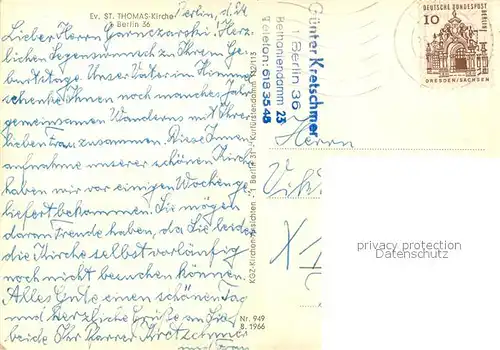 Ev. ST. THOMAS-Kirche
1 Berlin 36
Berlin, d.
Lieber Herr Garnczarski! Herz-
lichen Segenswunsch zu Ihrem Ge-
burtstage. Unser Vater im Himmel
schenke Ihnen noch manches Jahr
gemeinsamen Wanderns mit Ihrer
lieben Frau zusammen. Diese Innen-
aufnahme unserer schönen Kirche
haben wir vor einigen Wochen ge-
liefert bekommen. Sie mögen
daran Freude haben, da Sie beide
die Kirche selbst vorläufig
noch nicht besuchen können.
Alles Gute, einen schönen Tag
und herzliche Grüße an Sie
beide Ihr Pfarrer Kretschmer
und Frau
KGZ-Kirchen-Ansichten · 1 Berlin 31 · Kurfürstendamm 112/113
Nr. 949
B. 1966
Günter Kretschmer
1 Berlin 36
Bethaniendamm 23
Telefon: 618 35 45
DEUTSCHE BUNDESPOST
BERLIN
10
DRESDEN/SACHSEN
Herrn
privacy protection
Datenschutz